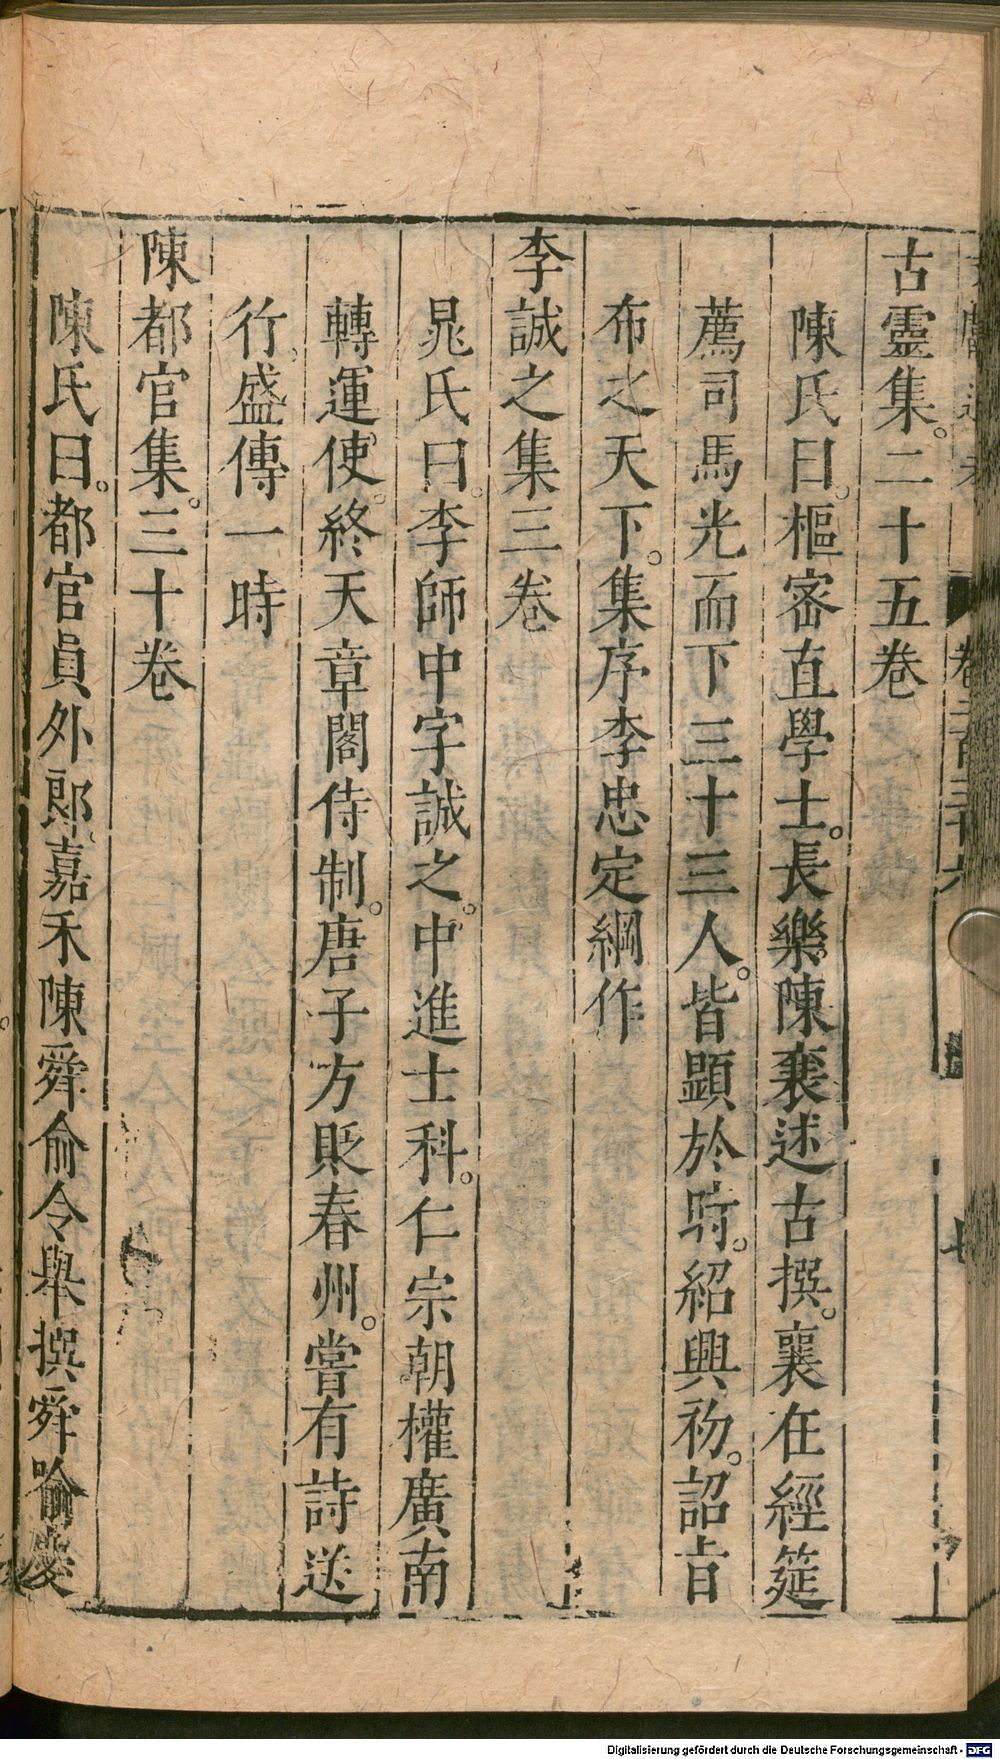 古靈集二十五卷
陳氏曰樞密直學士長樂陳襄述古撰襄在經筵
薦司馬光而下三十三人皆顯於時紹興初詔旨
布之天下集序李忠定綱作
李誠之集三卷
晁氏曰李師中字誠之中進士科仁宗朝權廣南
轉運使終天章閣侍制唐子方貶春州嘗有詩送
行盛傳一時
陳都官集三十卷
陳氏曰都官員外郎嘉禾陳舜俞令舉撰舜喻慶
Digitalisierung gefördert durch die Deutsche Forschungsgemeinschaft - DFG